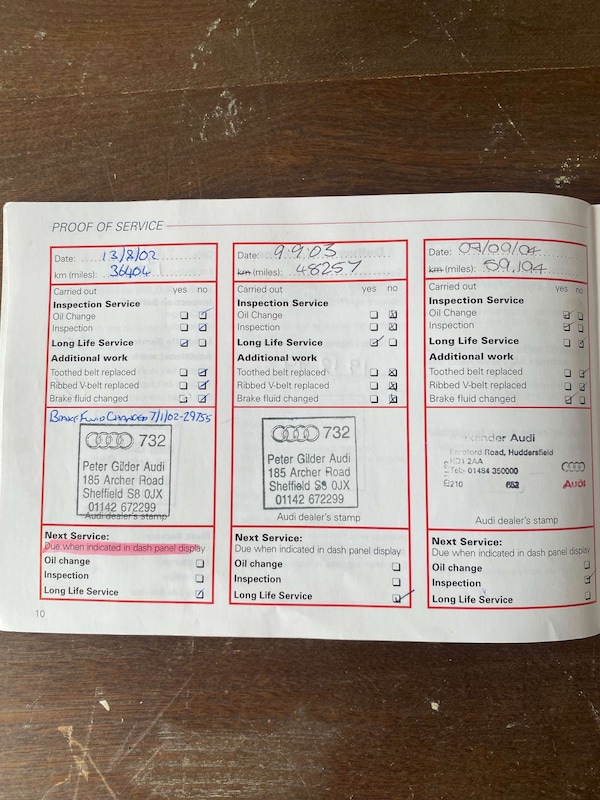 PROOF OF SERVICE
Date: 13/8/02
km (miles): 36404
Carried out yes no
Inspection Service
Oil Change
Inspection
Long Life Service
Additional work
Toothed belt replaced
Ribbed V-belt replaced
Brake fluid changed
BRAKE FLUID CHANGED 7/1/02-29755
732
Peter Gilder Audi
185 Archer Road
Sheffield S8 0JX
01142 672299
Audi dealer's stamp
Next Service:
Due when indicated in dash panel display
Oil change
Inspection
Long Life Service
10
Date: 9.9.03
km (miles): 48257
Carried out yes no
Inspection Service
Oil Change
Inspection
Long Life Service
Additional work
Toothed belt replaced
Ribbed V-belt replaced
Brake fluid changed
732
Peter Gilder Audi
185 Archer Road
Sheffield S8 0JX
01142 672299
Audi dealer's stamp
Next Service:
Due when indicated in dash panel display
Oil change
Inspection
Long Life Service
Date: 07/09/04
km (miles): 59,194
Carried out yes no
Inspection Service
Oil Change
Inspection
Long Life Service
Additional work
Toothed belt replaced
Ribbed V-belt replaced
Brake fluid changed
Audi
Road, Huddersfield
2AA
Tel: 01484 350000
652
Audi
Audi dealer's stamp
Next Service:
Due when indicated in dash panel display
Oil change
Inspection
Long Life Service